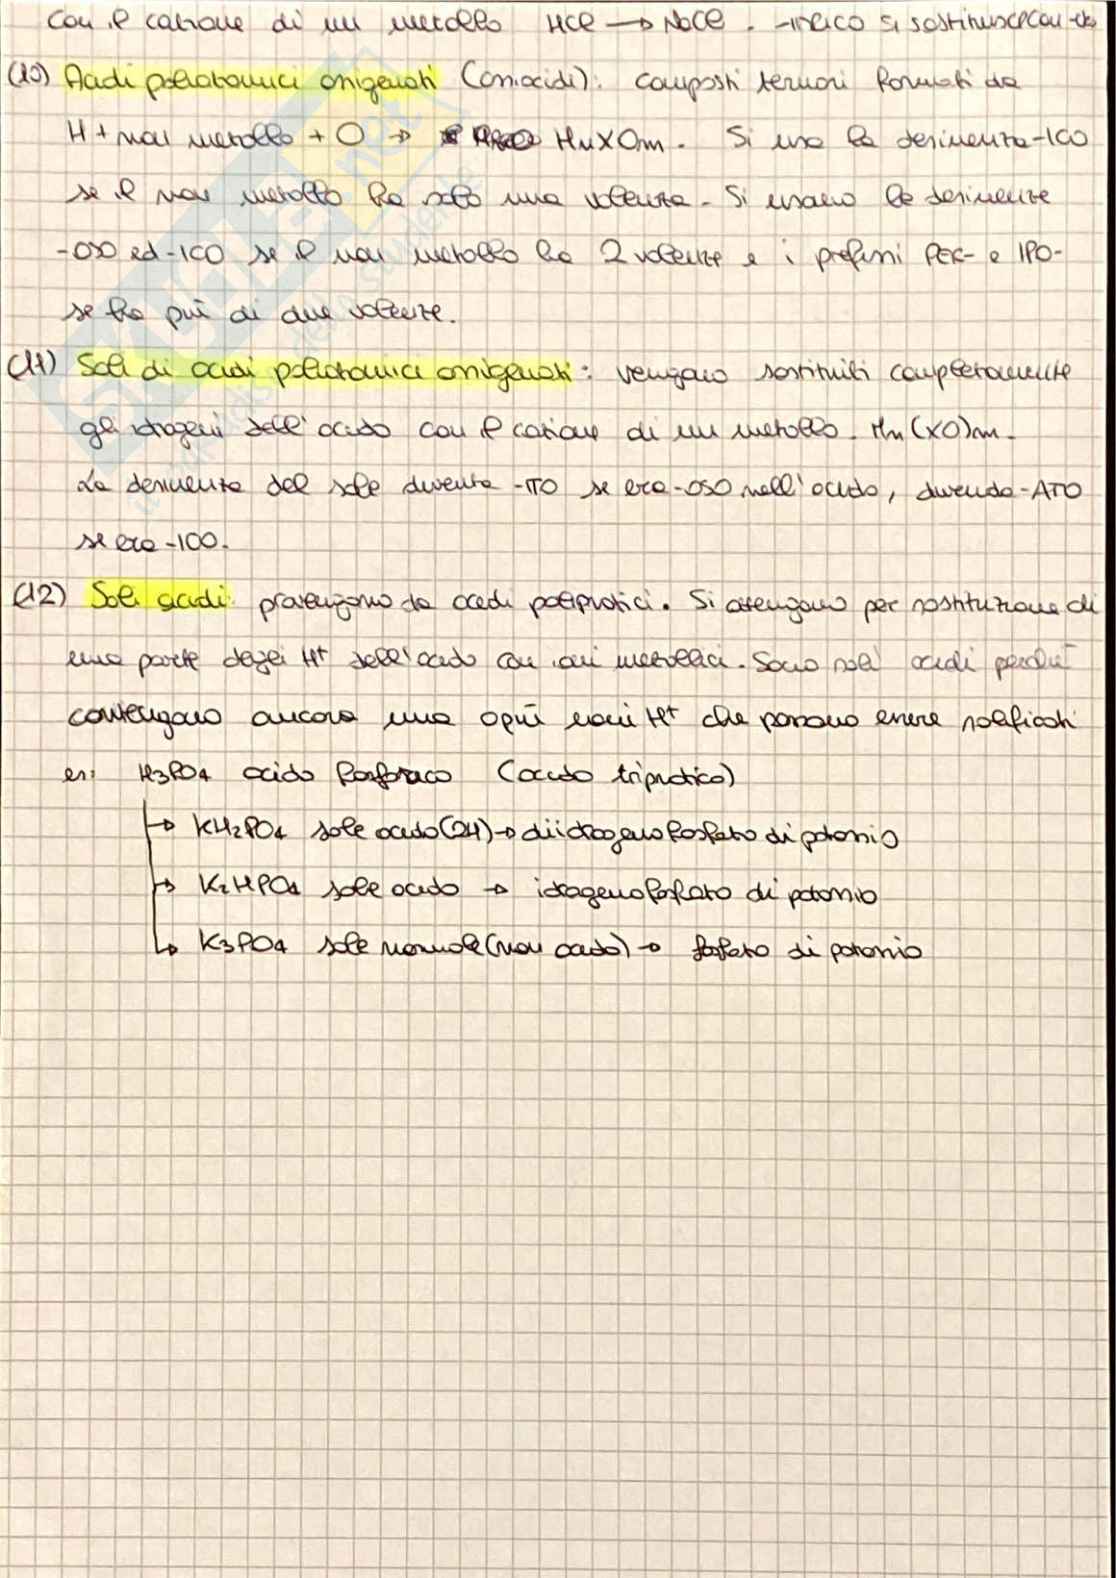 con il catione di un metallo HCl → NaCl. -idrico si sostituisce con -uro
(10) Acidi poliatomici ossigenati (ossiacidi): composti ternari formati da
H + non metallo + O → HnXOm. Si usa la desinenza -ICO
se il non metallo ha solo una valenza. Si usano le desinenze
-OSO ed -ICO se il non metallo ha 2 valenze e i prefissi PER- e IPO-
se ha più di due valenze.
(11) Sali di acidi poliatomici ossigenati: vengono sostituiti completamente
gli idrogeni dell'acido con il catione di un metallo. Mn(XO)m.
La desinenza del sale diventa -ITO se era -OSO nell'acido, diventa -ATO
se era -ICO.
(12) Sali acidi: provengono da acidi poliprotici. Si ottengono per sostituzione di
una parte degli H⁺ dell'acido con ioni metallici. Sono sali acidi perché
contengono ancora uno o più ioni H⁺ che possono essere salificati
es: H₃PO₄ acido fosforico (acido triprotico)
→ KH₂PO₄ sale acido (2H) → diidrogenofosfato di potassio
→ K₂HPO₄ sale acido → idrogenofosfato di potassio
→ K₃PO₄ sale normale (non acido) → fosfato di potassio